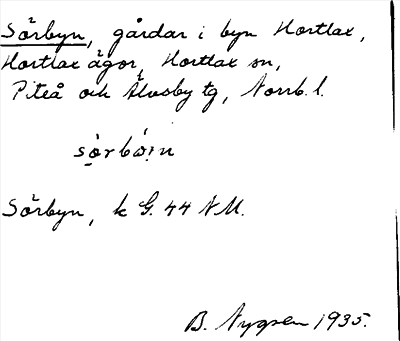 Sörbyn, gårdar i byn Hortlax,
Hortlax ägor, Hortlax sn,
Piteå och Älvsby tg, Norrb. l.
sö̀rbó̤in
Sörbyn, k G. 44 NM.
B. Nygren 1935.